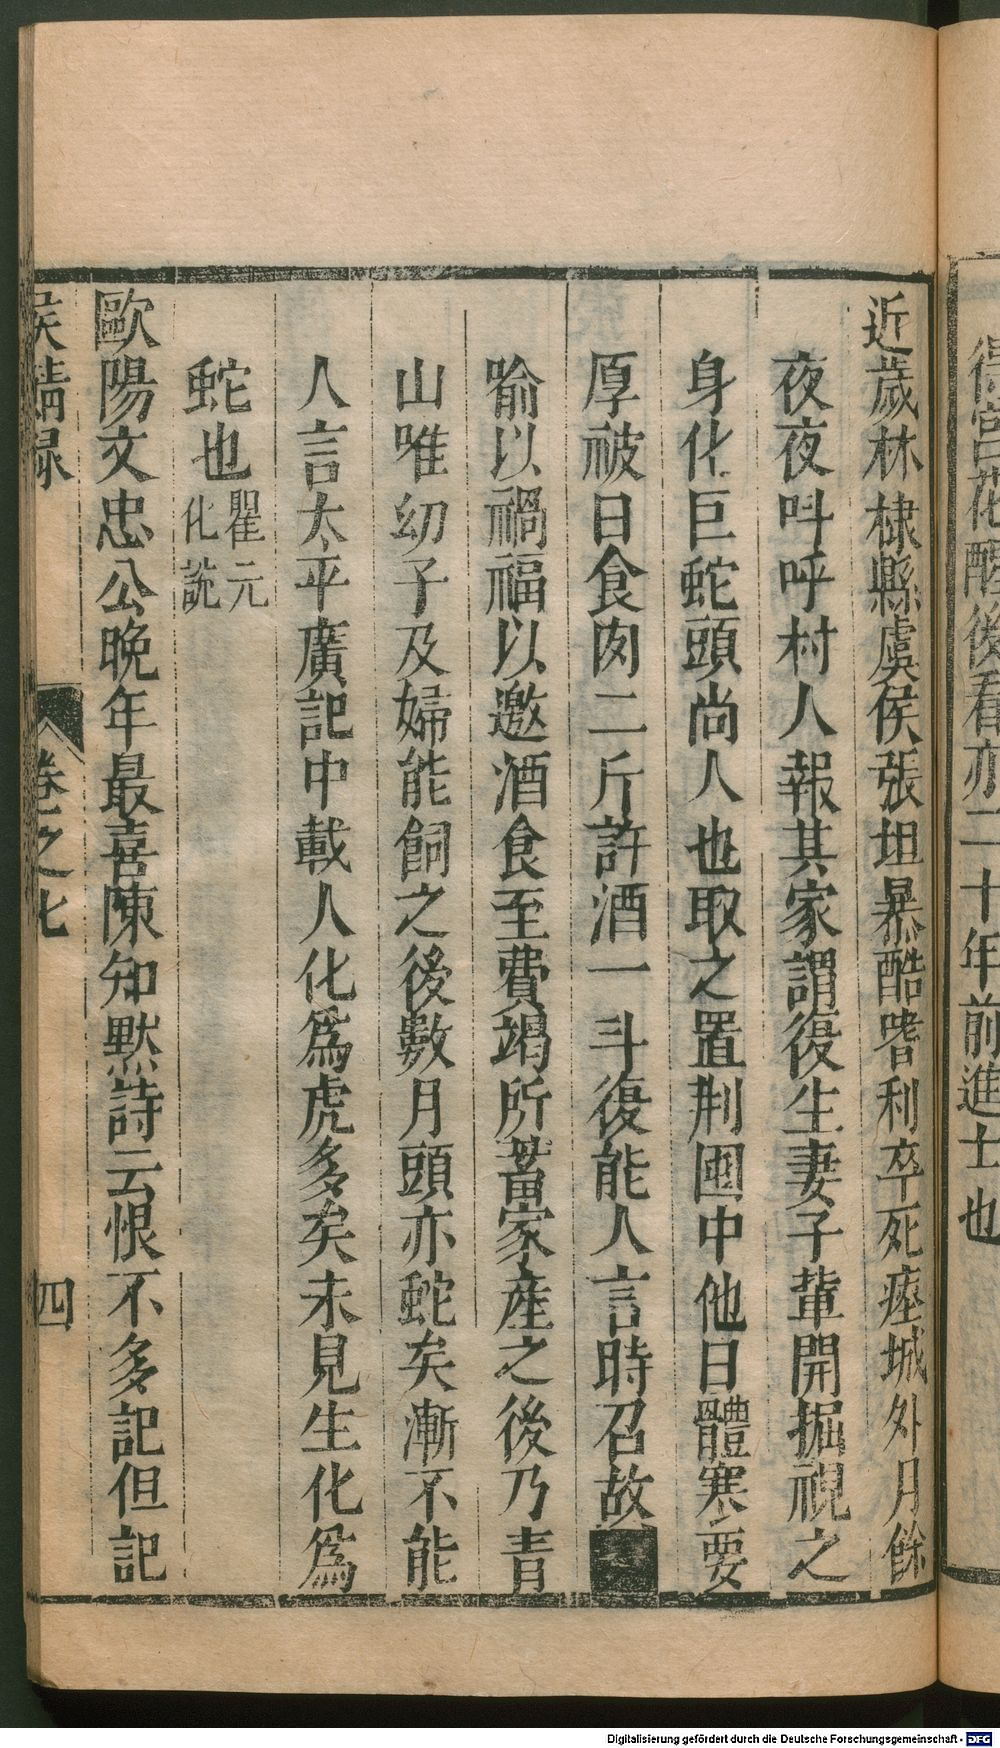 後看亦二十年前進士也
近歲林棣縣虞侯張坦暴酷嗜利卒死瘞城外月餘
夜夜呌呼村人報其家謂復生妻子軰開掘視之
身化巨蛇頭尚人也取之置荆圍中他日體寒要
厚被日食肉二斤許酒一斗復能人言時召故
喻以禍福以邀酒食至費竭所蓄家産之後乃青
山唯幼子及婦能飼之後數月頭亦蛇矣漸不能
人言太平廣記中載人化爲虎多矣未見生化爲
蛇也瞿元化説
歐陽文忠公晩年最喜陳知黙詩云恨不多記但記
侯鯖録 卷之七 四
Digitalisierung gefördert durch die Deutsche Forschungsgemeinschaft - DFG